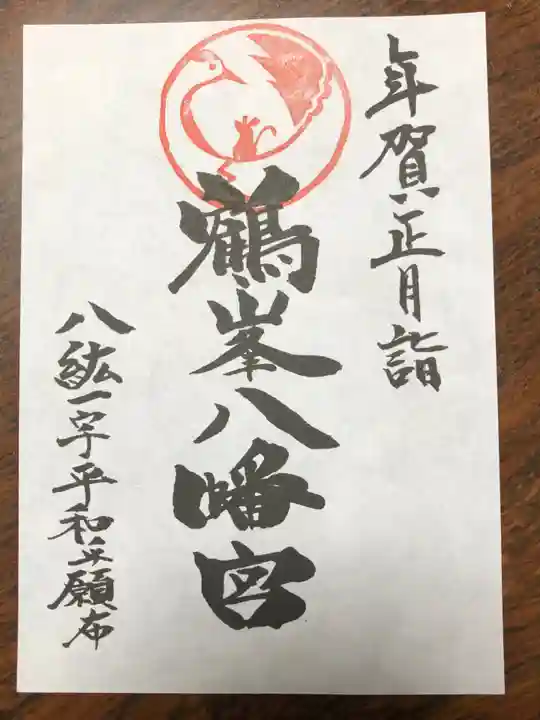 年賀正月詣
鶴峯八幡宮
八紘一宇平和立願布